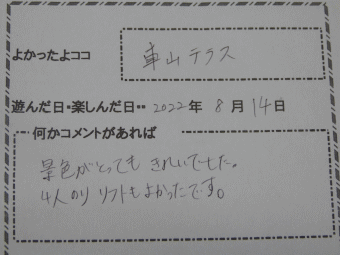 よかったよココ
車山テラス
遊んだ日・楽しんだ日・・ 2022年 8月 14日
何かコメントがあれば
景色がとってもきれいでした。
4人のり リフトもよかったです。